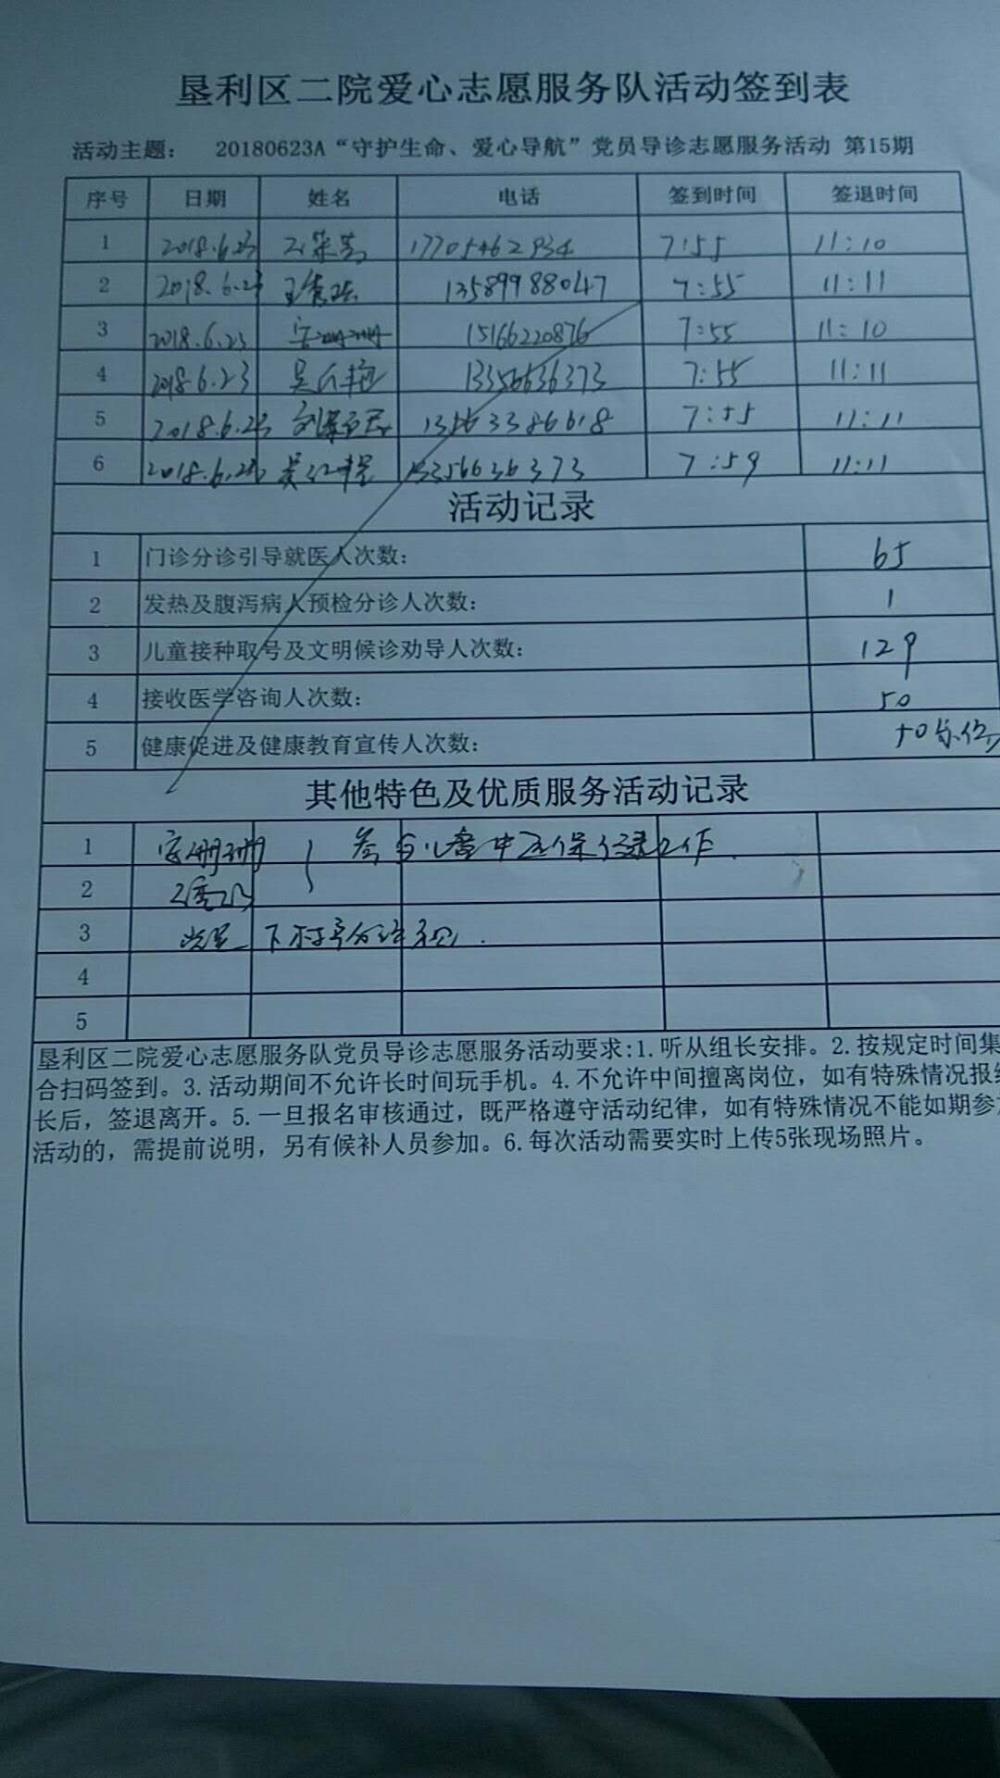 垦利区二院爱心志愿服务队活动签到表
活动主题： 20180623A“守护生命、爱心导航”党员导诊志愿服务活动 第15期
序号 日期 姓名 电话 签到时间 签退时间
1 2018.6.23 17705462934 7:55 11:10
2 2018.6.23 13589988047 7:55 11:11
3 2018.6.23 15166220876 7:55 11:10
4 2018.6.23 13356636373 7:55 11:11
5 2018.6.23 13563386618 7:55 11:11
6 2018.6.23 13356636373 7:59 11:11
活动记录
1 门诊分诊引导就医人次数： 65
2 发热及腹泻病人预检分诊人次数： 1
3 儿童接种取号及文明候诊劝导人次数： 129
4 接收医学咨询人次数： 50
5 健康促进及健康教育宣传人次数： 50余位
其他特色及优质服务活动记录
1 参与儿童中医保健工作.
2
3 下村
4
5
垦利区二院爱心志愿服务队党员导诊志愿服务活动要求:1.听从组长安排。2.按规定时间集
合扫码签到。3.活动期间不允许长时间玩手机。4.不允许中间擅离岗位，如有特殊情况报组
长后，签退离开。5.一旦报名审核通过，既严格遵守活动纪律，如有特殊情况不能如期参加
活动的，需提前说明，另有候补人员参加。6.每次活动需要实时上传5张现场照片。